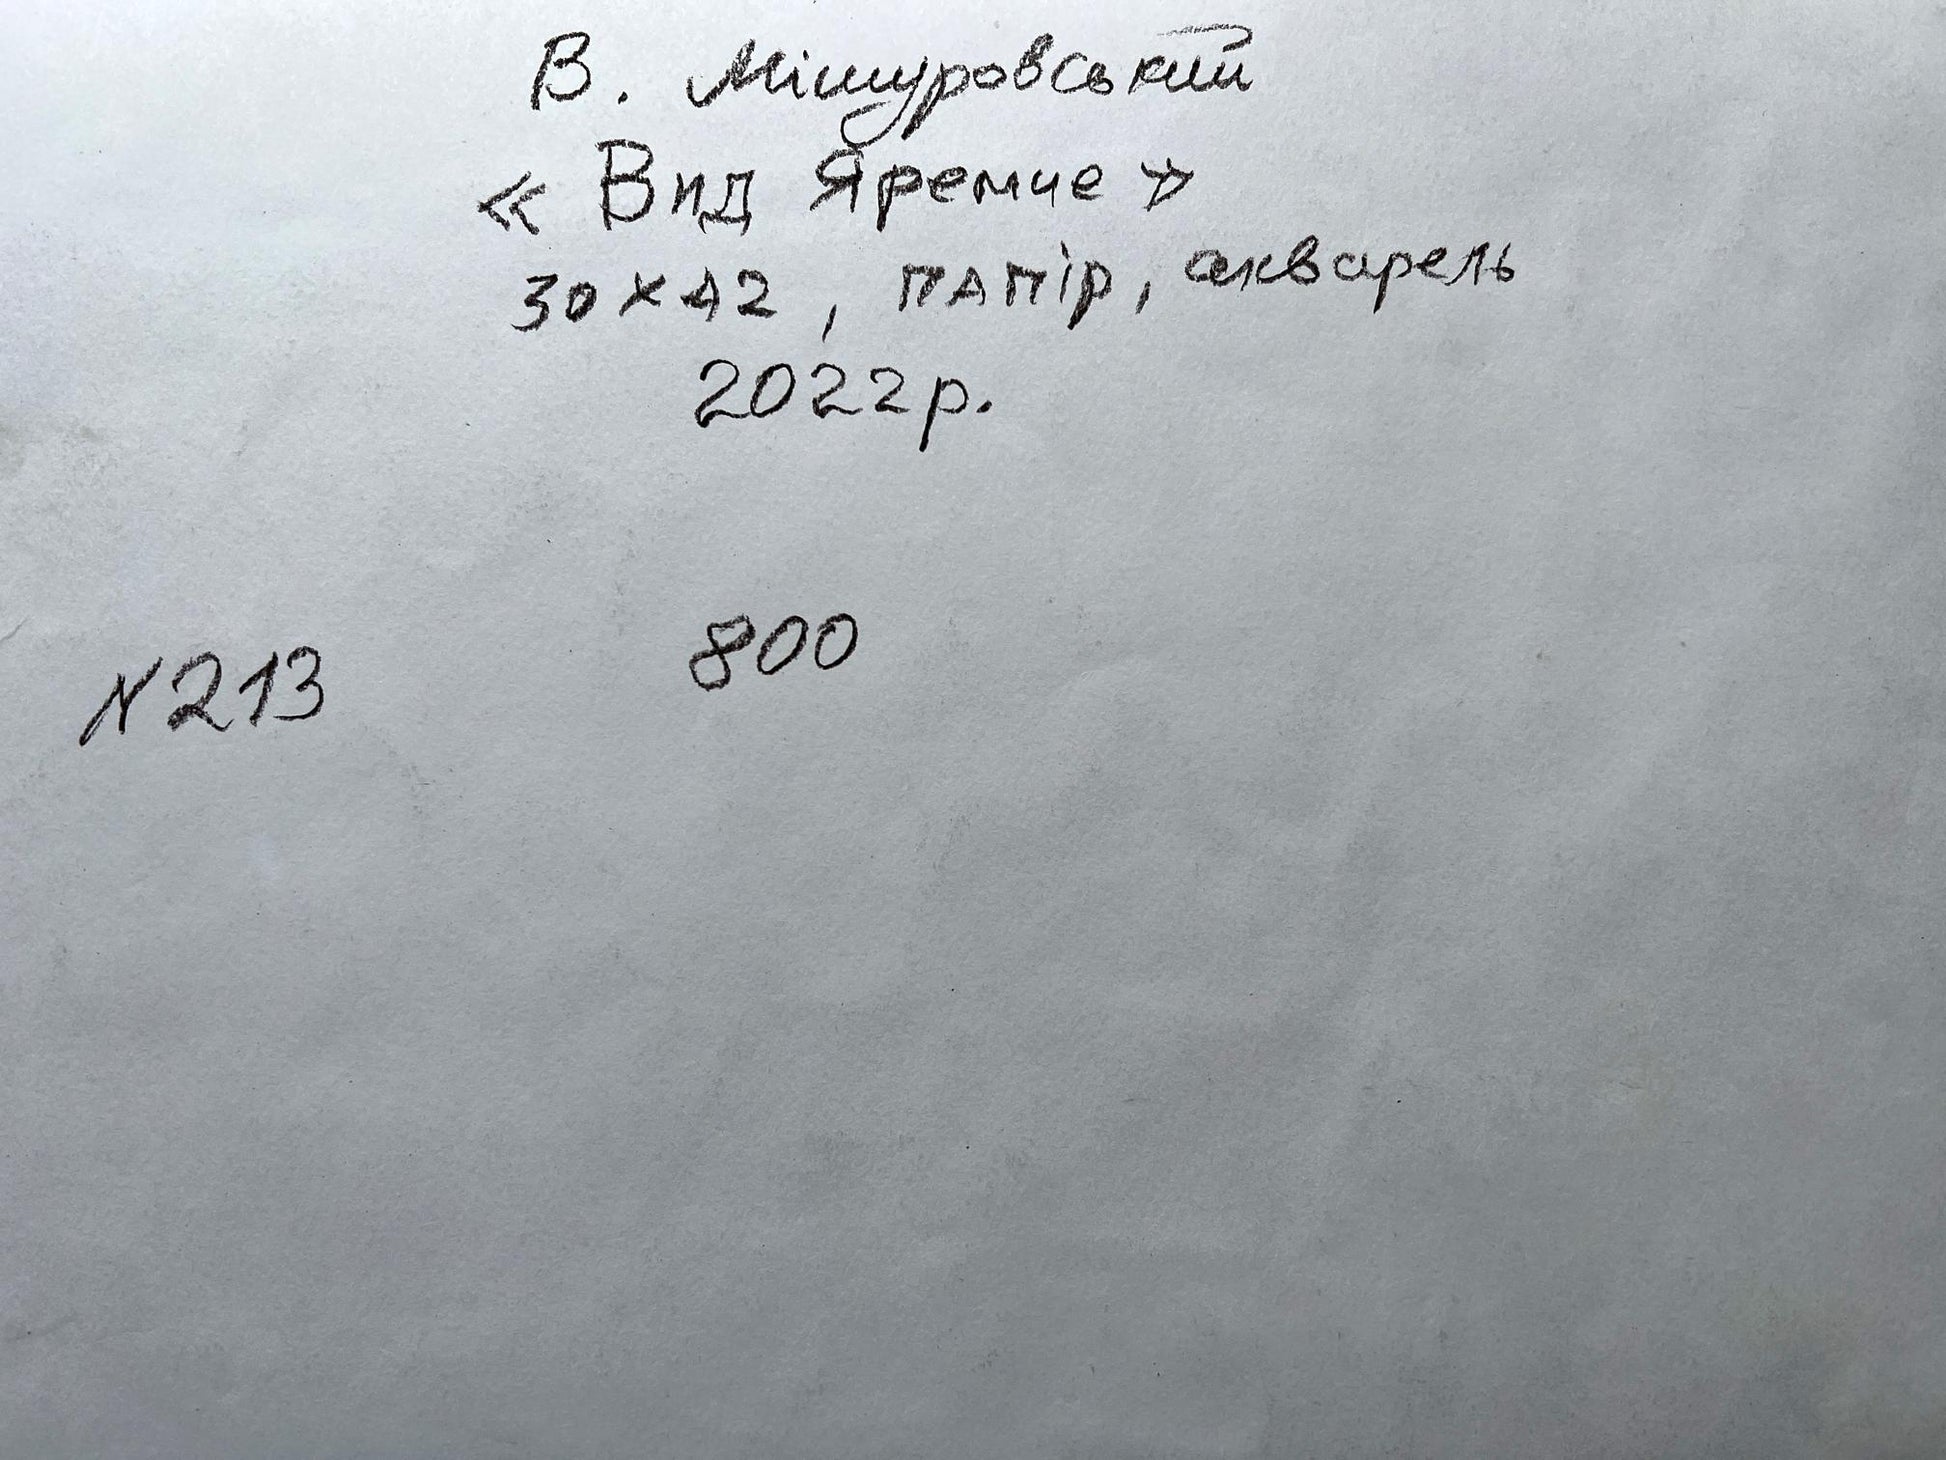 В. Мішуровський
« Вид Яремче »
30х42, папір, акварель
2022р.
800
N213